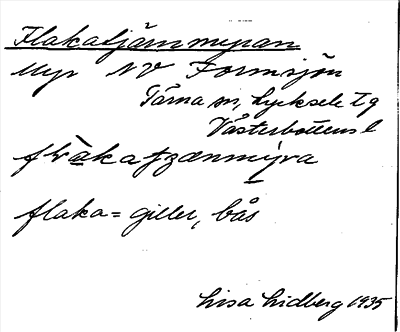 Flakatjärnmyran
Myr NV Formsjön
Tärna sn, Lycksele tg
Västerbottens l
flaka = giller, bås
Lisa Lidberg 1935